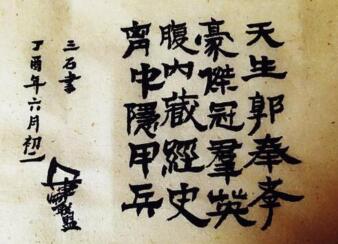 天生郭奉孝
豪傑冠羣英
腹内藏經史
胷中隱甲兵
三石書
丁酉年六月初